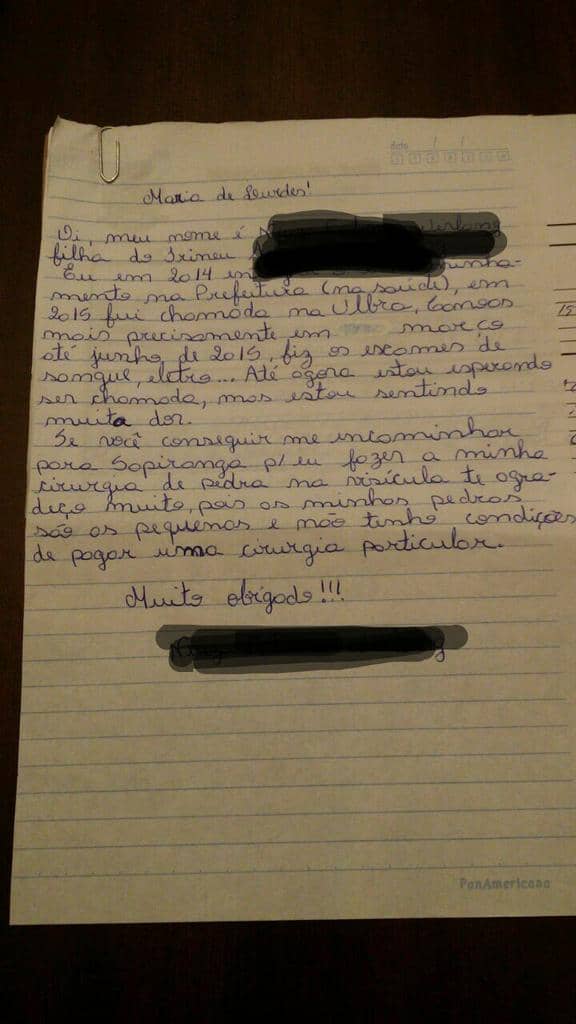 data / /
Maria de Lourdes!
Oi, meu nome é
filha do Irineu
Eu em 2014
mento na Prefeitura (na saúde), em
2015 fui chamada na Ulbra, Canoas
mais precisamente em março
até junho de 2015, fiz os exames de
sangue, eletro... Até agora estou esperando
ser chamada, mas estou sentindo
muita dor.
Se você conseguir me incaminhar
para Sapiranga p/ eu fazer a minha
cirurgia de pedra na visícula te agra-
deço muito, pois as minhas pedras
são as pequenas e não tenho condições
de pagar uma cirurgia particular.
Muito obrigado!!!
PanAmericana